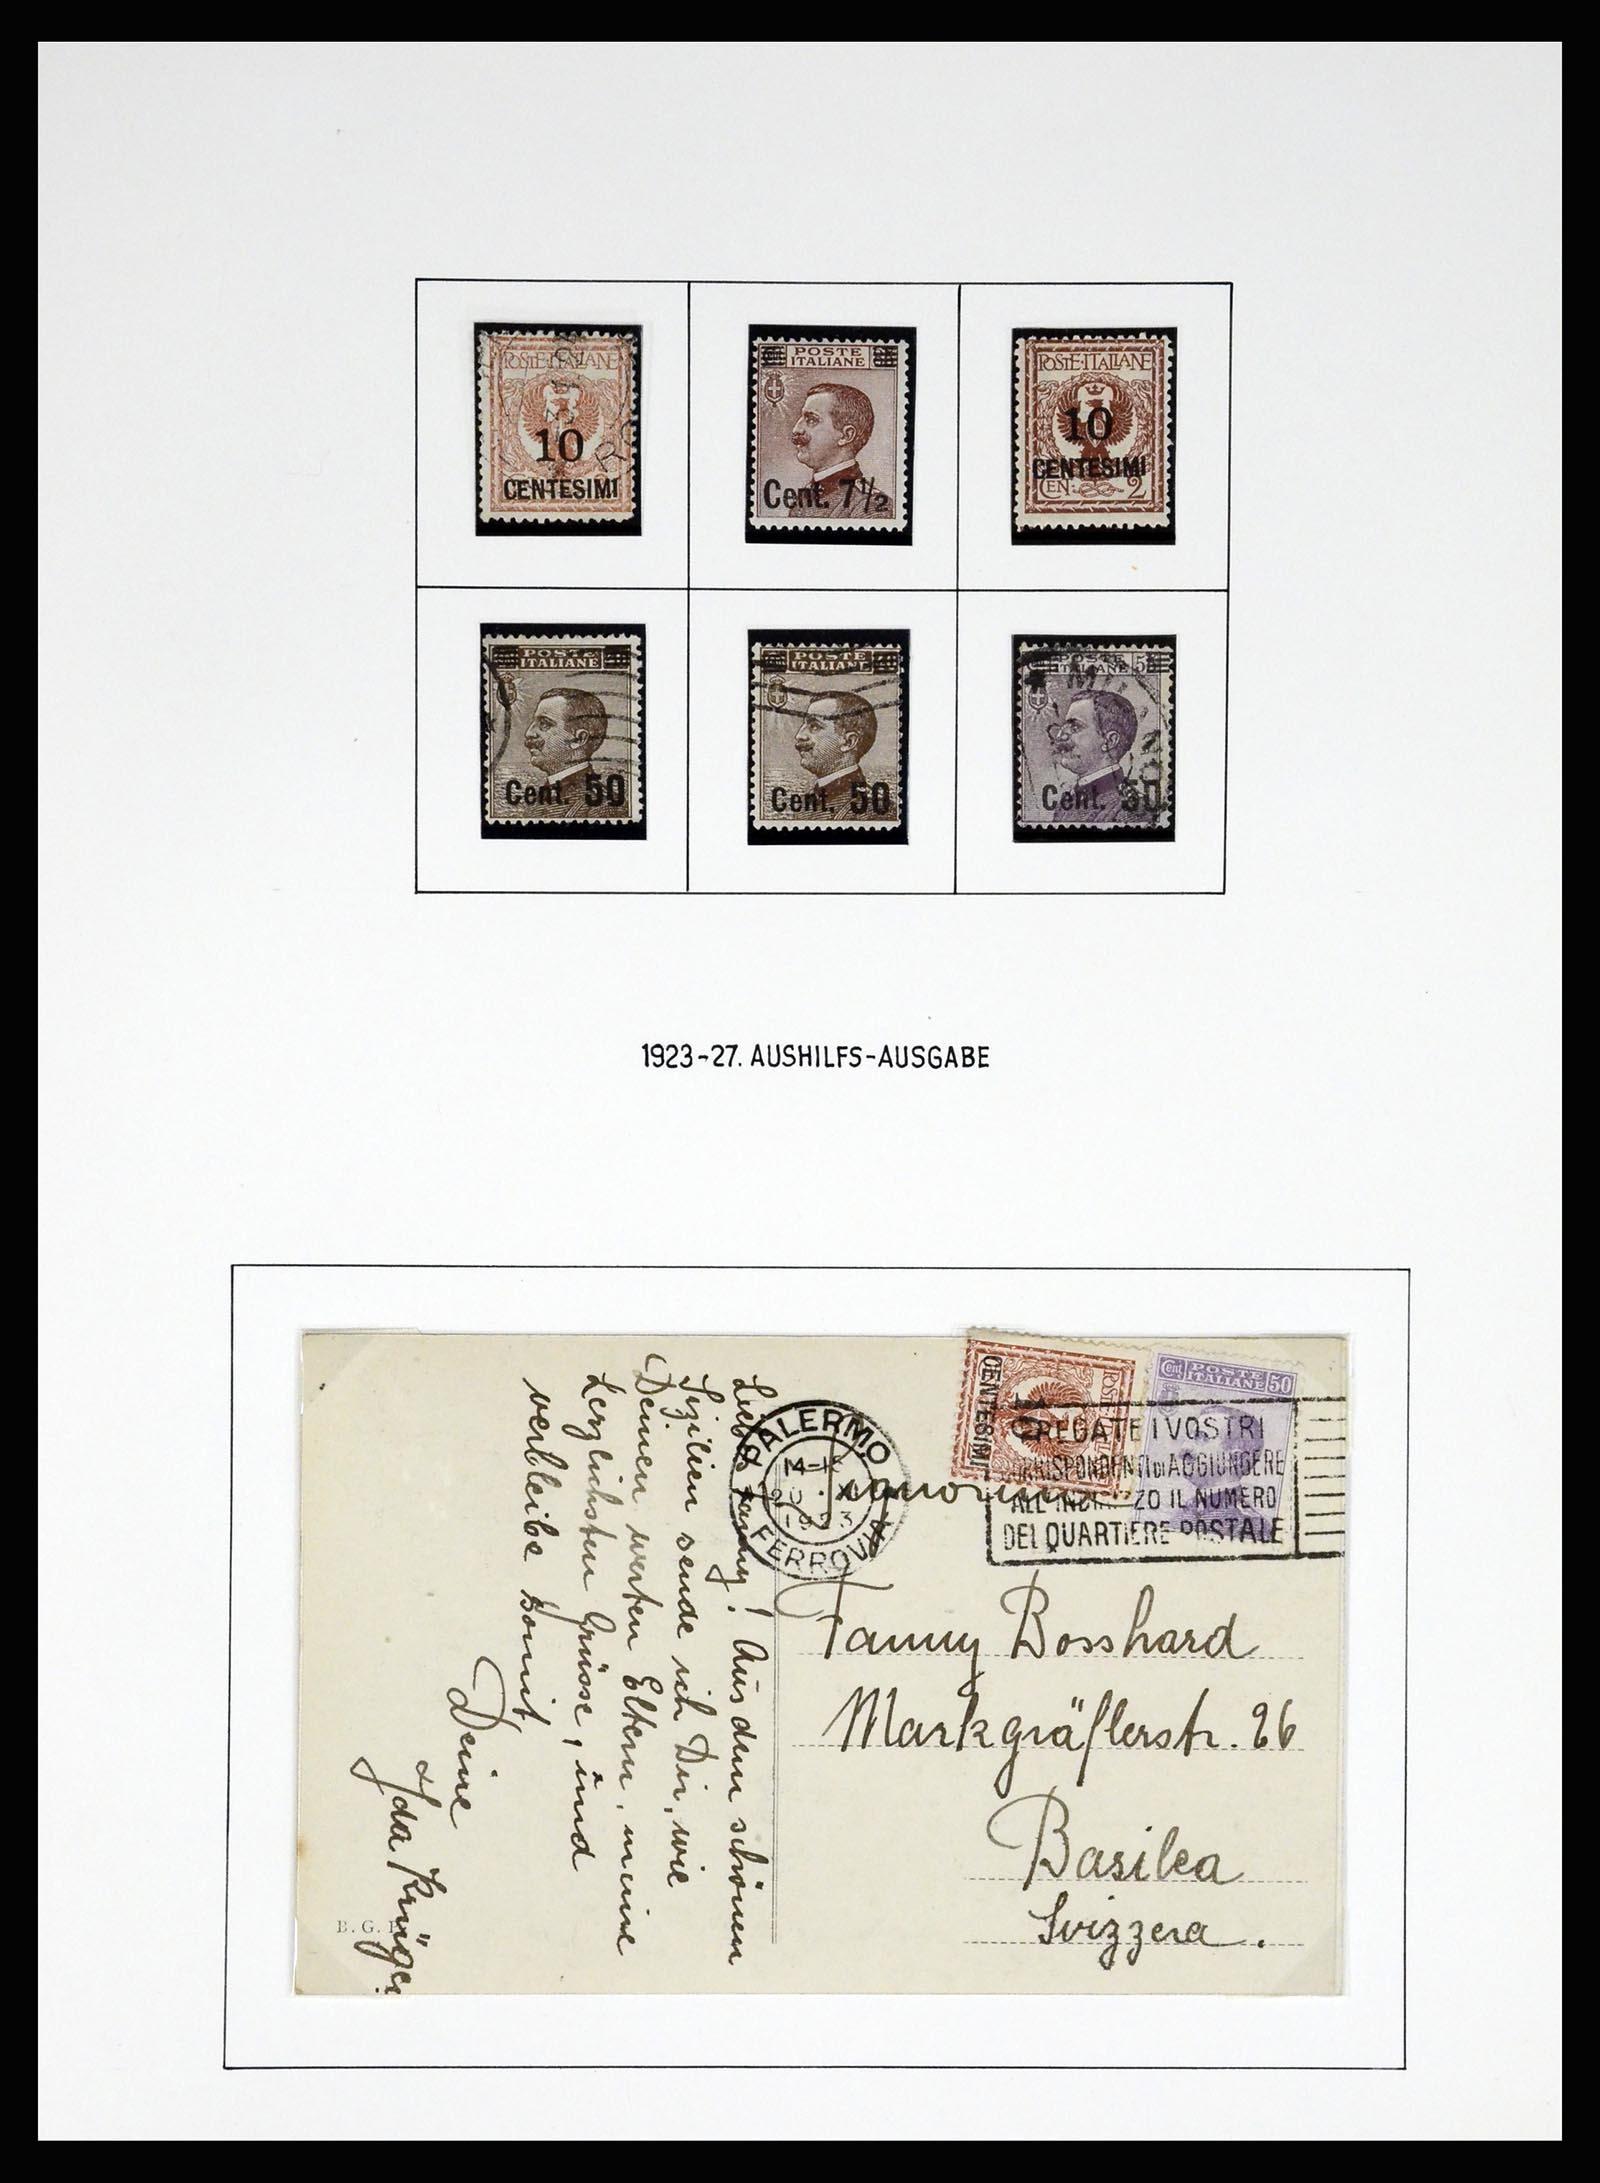 POSTE·ITALIANE
10
CENTESIMI
POSTE
ITALIANE
Cent. 7½
POSTE·ITALIANE
10
CENTESIMI
CEN: 2
POSTE
ITALIANE
Cent. 50
POSTE
ITALIANE
Cent. 50
POSTE
ITALIANE 50
Cent. 50
1923-27. AUSHILFS-AUSGABE
10
CENTESIMI
Cent POSTE 50
ITALIANE
PALERMO
FERROVIA
PREGATE I VOSTRI
CORRISPONDENTI DI AGGIUNGERE
ALL'INDIRIZZO IL NUMERO
DEL QUARTIERE POSTALE
Liebe Fanny! Aus dem schönen
Sizilien sende ich Dir, wie
Deinen werten Eltern, meine
herzlichsten Grüsse, und
verbleibe somit
Deine
Ida Krüger
Fanny Bosshard
Markgräflerstr. 26
Basilea
Svizzera.
B. G.